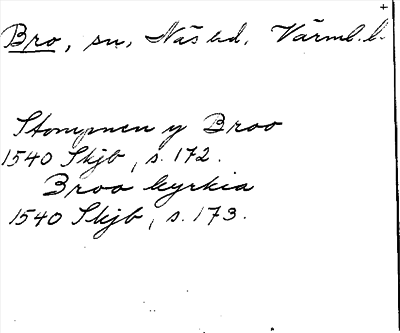 Bro, sn, Näs hd, Värml. l.
Stompnen y Broo
1540 Skjb, s. 172.
Broa kyrkia
1540 Skjb, s. 173.